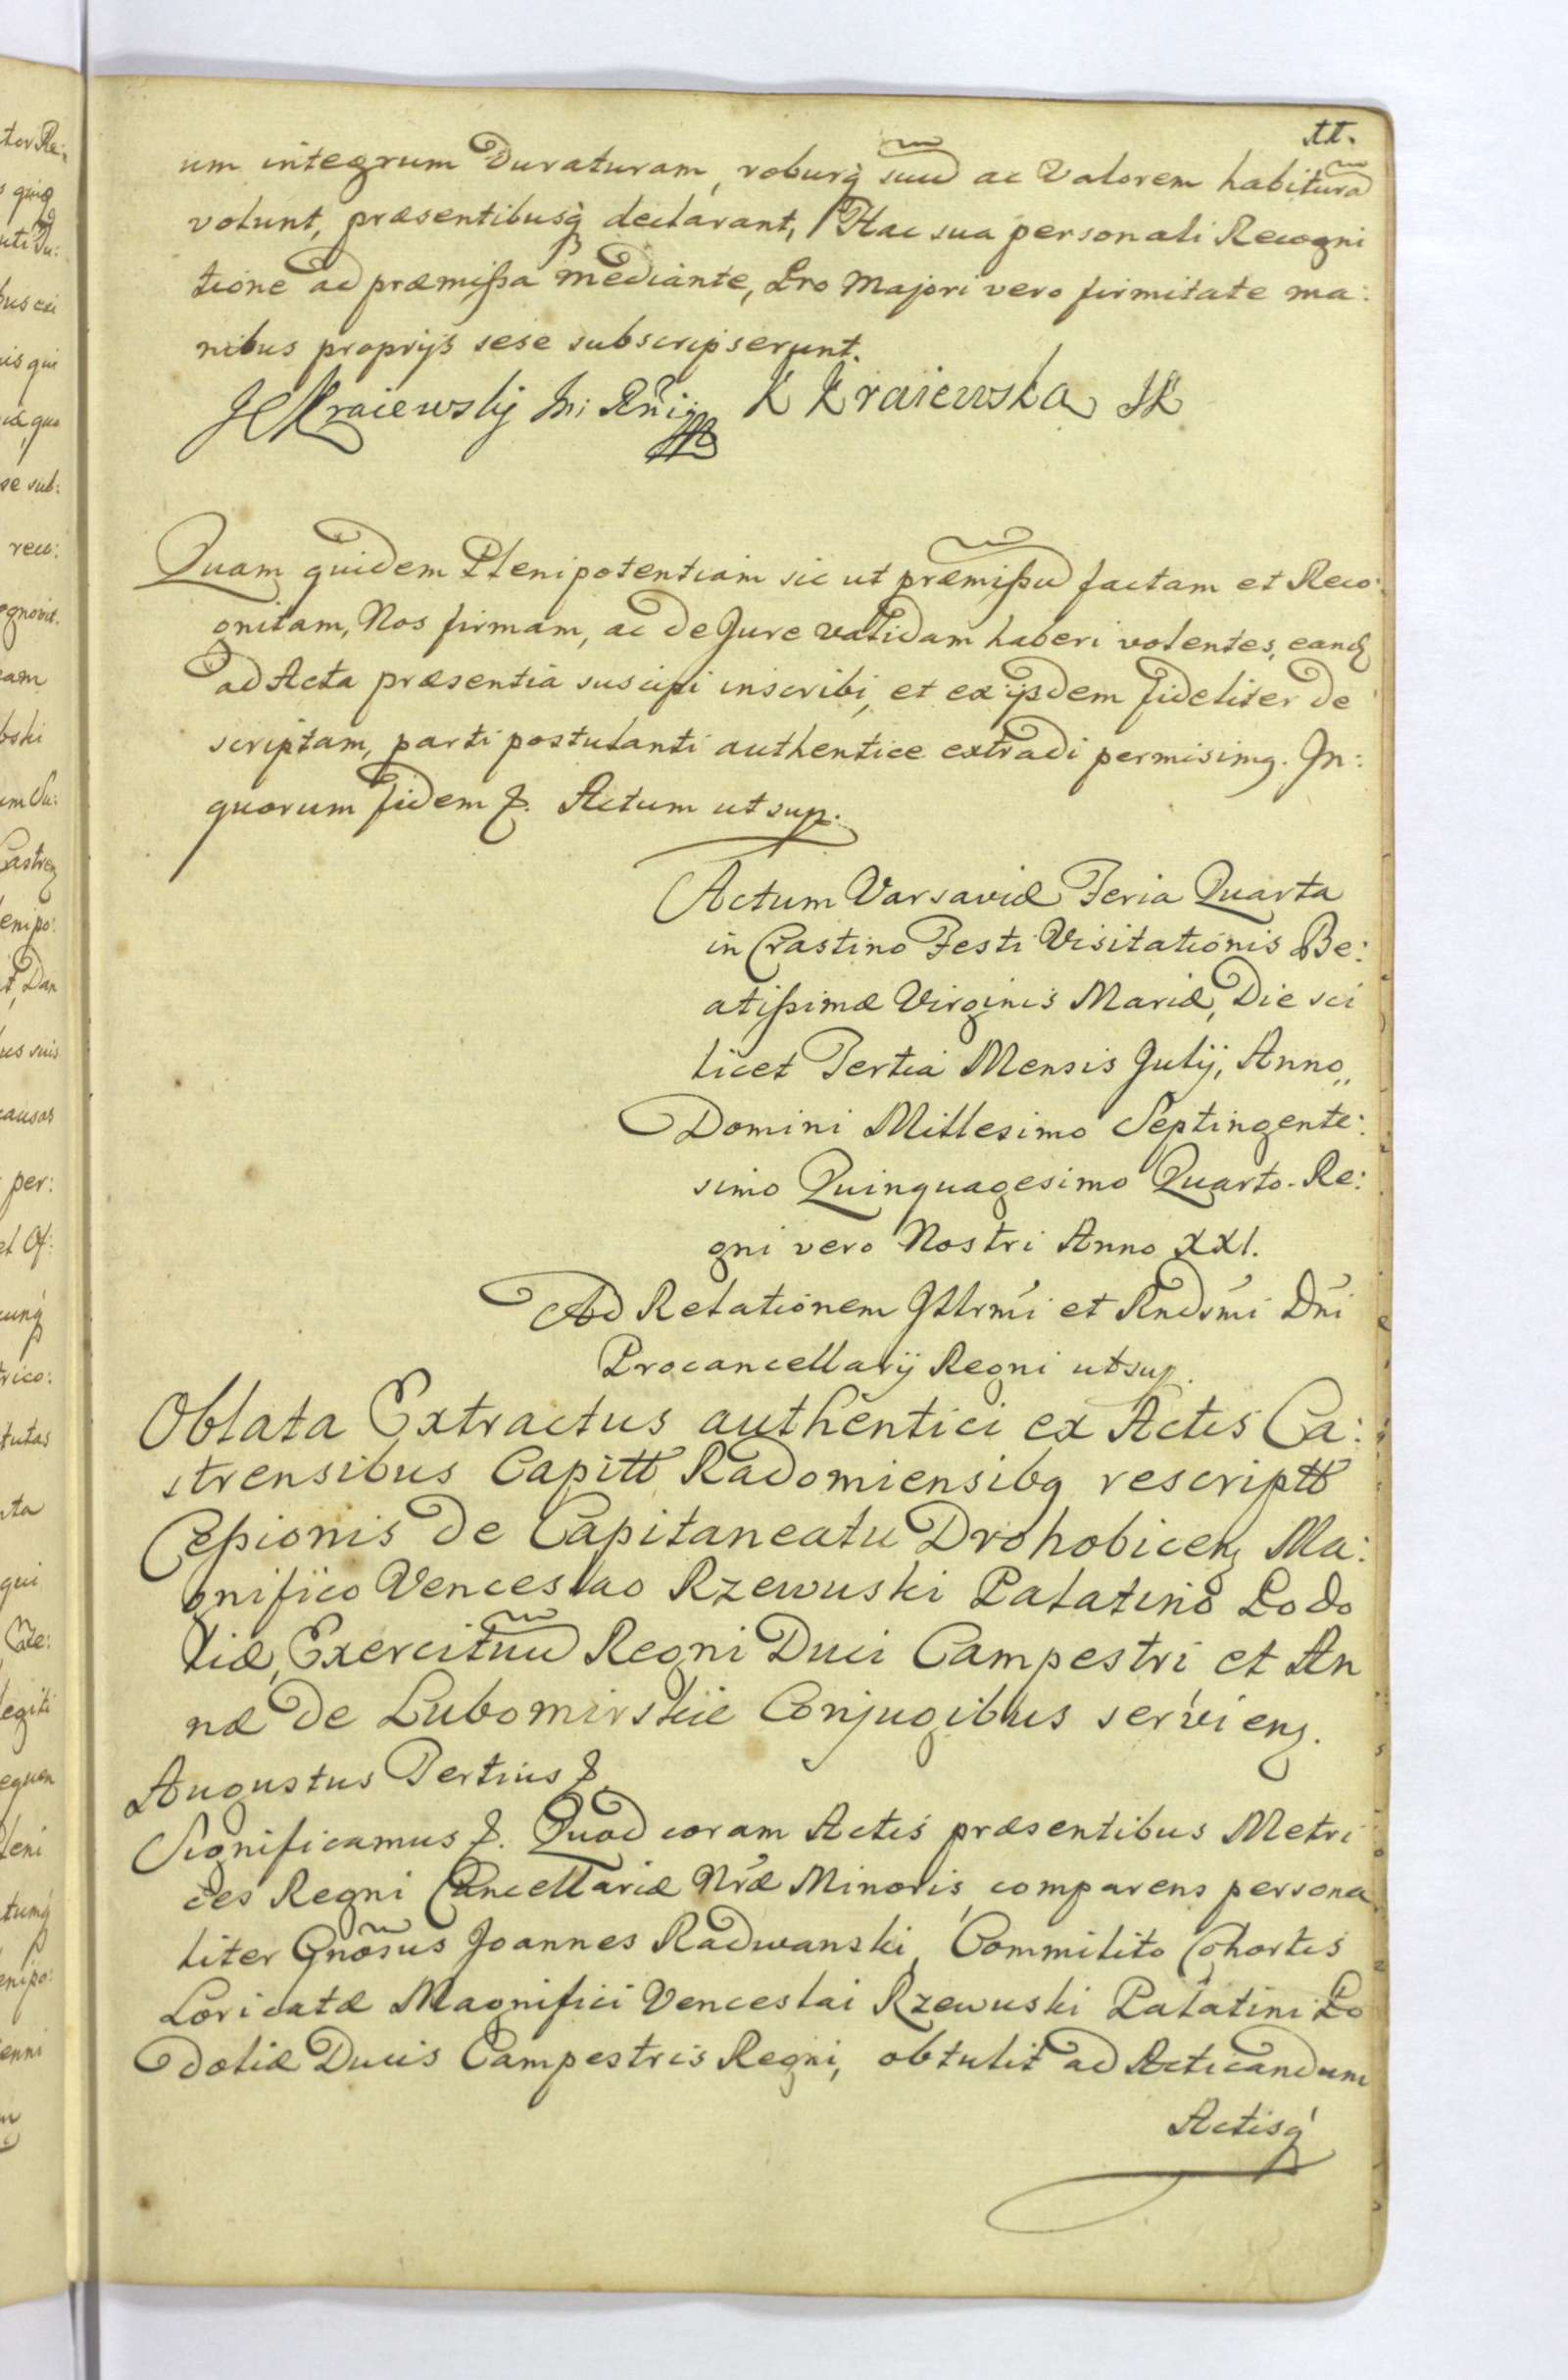 11.
um integrum Duraturam, roburq́ suũ ac Valorem habiturã
volunt, præsentibusq́ declarant, Hac sua personali Recogni
tione ad præmißa mediante, Pro Majori vero firmitate ma:
nibus proprijs sese subscripserunt.
Kraiewskij K Kraiewska SK
Quam quidem Plenipotentiam sic ut præmißũ factam et Reco:
gnitam, Nos firmam, ac de Jure validam haberi volentes, eandq
ad Acta præsentia suscipi inscribi, et ex ijsdem fideliter de
scriptam, parti postulanti authentice extradi permisimq. In:
quorum fidem &. Actum ut sup.
Actum Varsaviæ Feria Quarta
in Crastino Festi Visitationis Be:
atißimæ Virginis Mariæ, Die sci
licet Tertia Mensis Julij, Anno„
Domini Millesimo Septingente:
simo Quinquagesimo Quarto. Re:
gni vero Nostri Anno XXI.
Ad Relationem Jllrmi et Rndsmi Dni
Procancellarij Regni ut sup.
Oblata Extractus authentici ex Actis Ca:
strensibus Capitt Radomiensibq rescriptt
Ceßionis de Capitaneatu Drohobicen Ma:
gnifico Venceslao Rzewuski Palatino Podo
liæ, Exercituũ Regni Duci Campestri et An
næ de Lubomirskie Conjugibus servien.
Augustus Tertius &
Significamus &. Quod coram Actis præsentibus Metri
ces Regni Cancellariæ Nræ Minoris, comparens persona
liter Gnosus Joannes Radwanski, Commilito Cohortis
Loricatæ Magnifici Venceslai Rzewuski Palatini Po
doliæ Ducis Campestris Regni, obtulit ad Acticandum
Actisq́